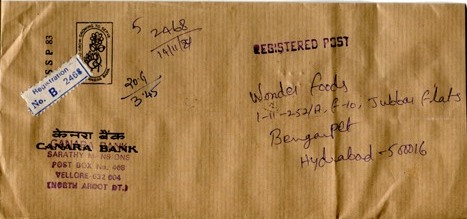 5 2468
14/11/84
REGISTERED POST
S S P 83
Registration
No. B. 2468
20.9
3.45
Wonder Foods
1-11-252/A, F-10, Jubbar flats
Begumpet
Hydrabad - 500016
केनरा बैंक
CANARA BANK
SARATHY MANSIONS
POST BOX No. 468
VELLORE-632 004
(NORTH ARCOT DT.)